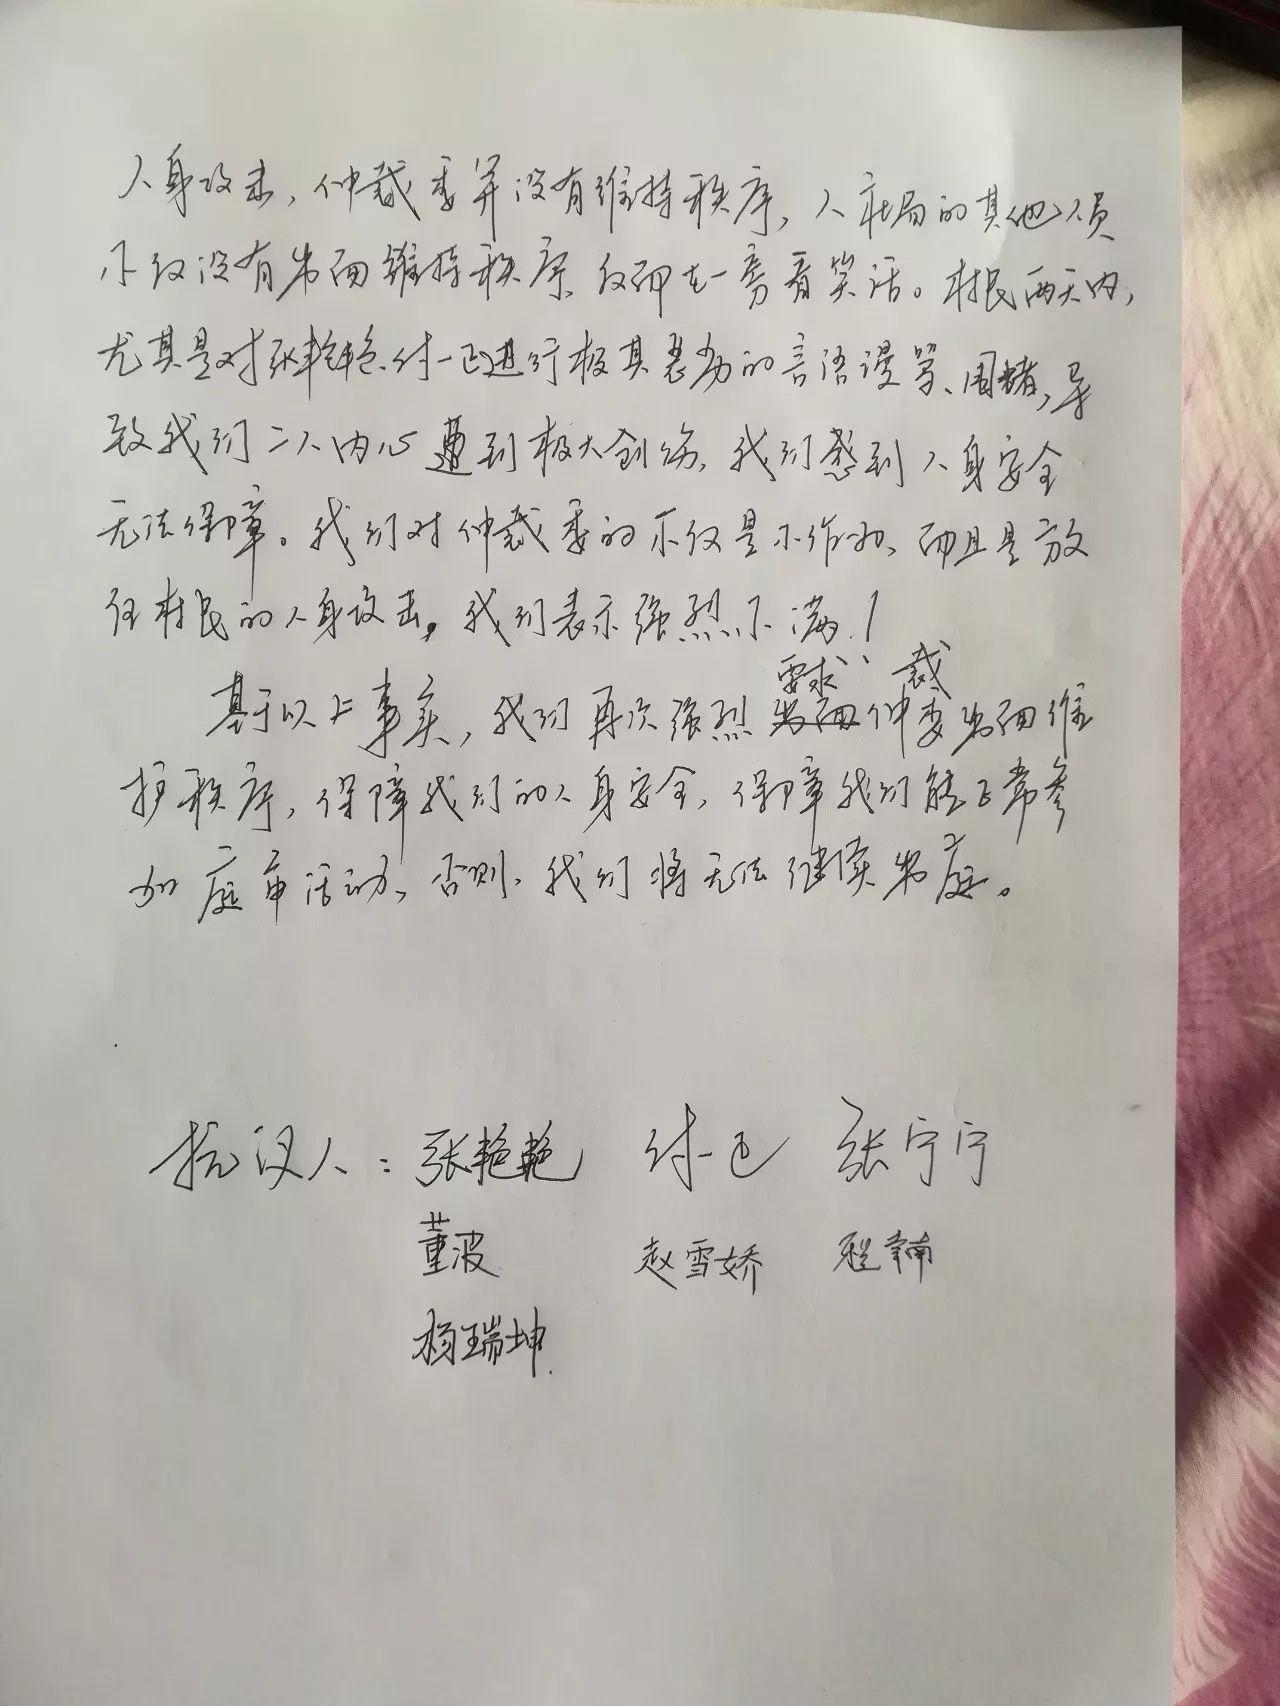 人身攻击，仲裁委并没有维持秩序，人社局的其他人员
不仅没有出面维持秩序，反而在一旁看笑话。村民两天内，
尤其是对张艳艳、付一巳进行极其恶劣的言语谩骂、围堵，导
致我们二人内心遭到极大创伤，我们感到人身安全
无法保障。我们对仲裁委的不仅是不作为，而且是放
任村民的人身攻击，我们表示强烈不满！
基于以上事实，我们再次强烈要求仲裁委出面维
护秩序，保障我们的人身安全，保障我们能正常参
加庭审活动，否则，我们将无法继续出庭。
抗议人：张艳艳 付一巳 张宁宁
董波 赵雪娇
杨瑞坤